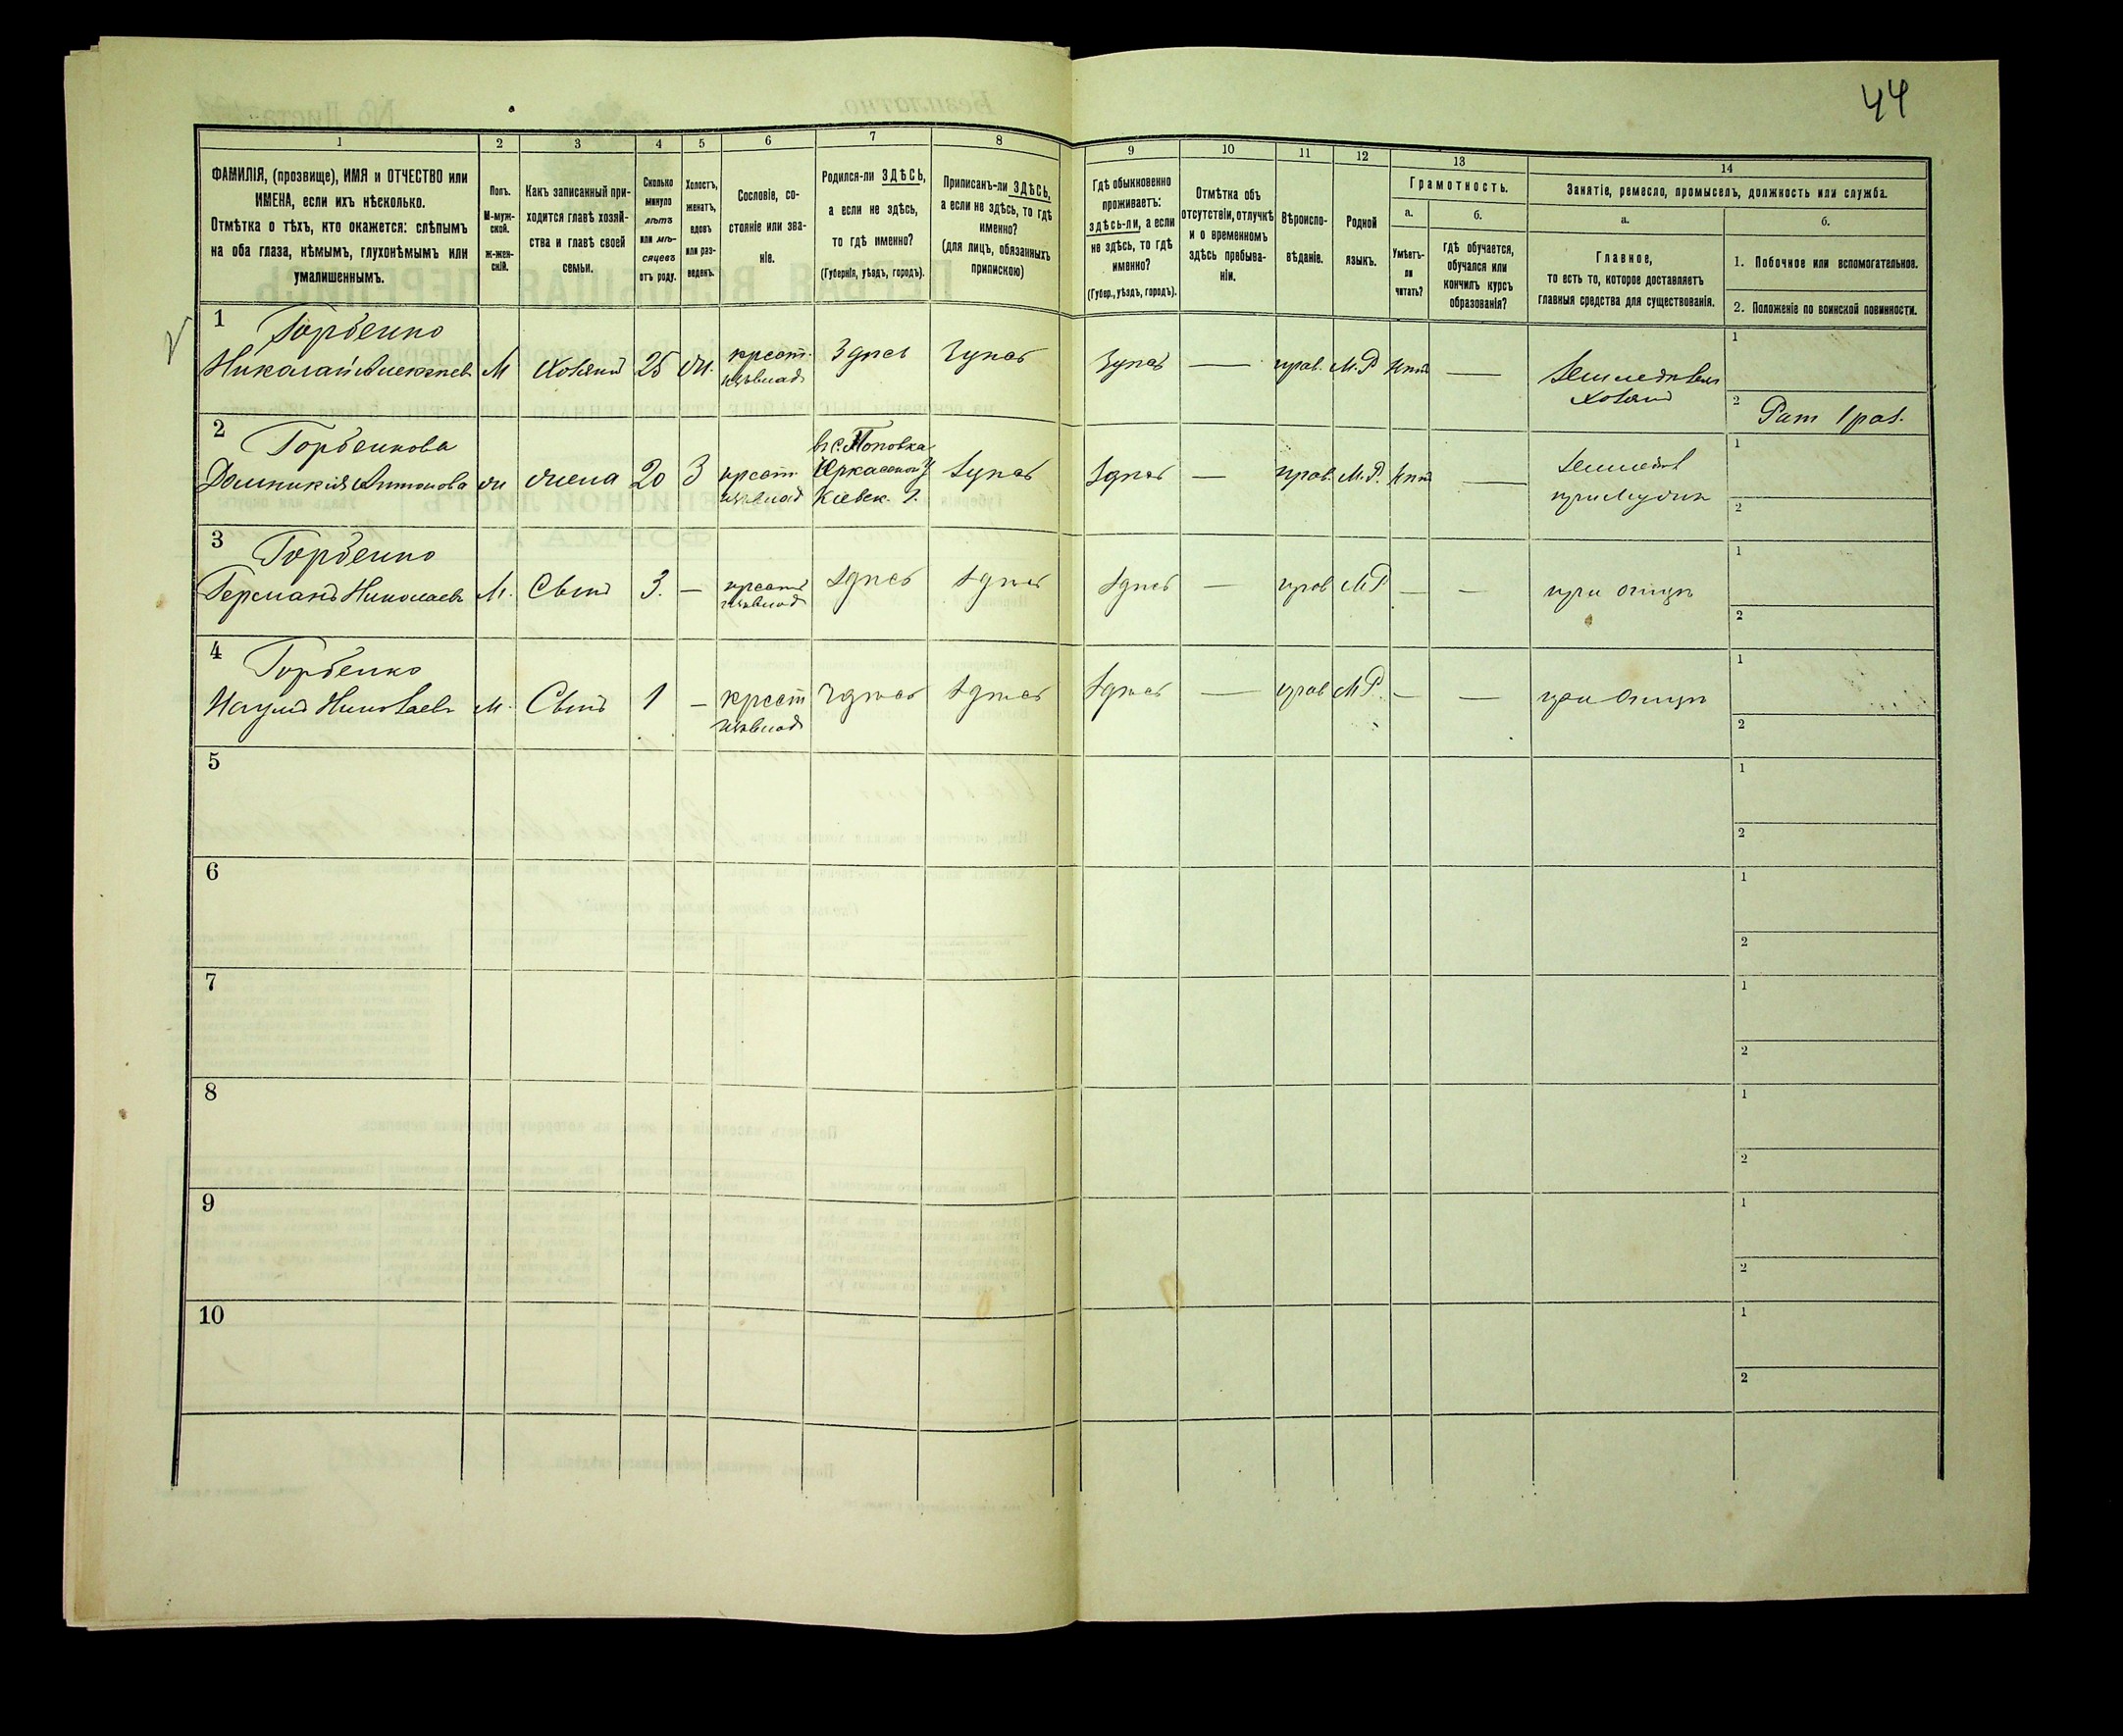 44
1
2
3
4
5
6
7
8
9
10
11
12
13
14
ФАМИЛІЯ, (прозвище), ИМЯ и ОТЧЕСТВО или
ИМЕНА, если ихъ нѣсколько.
Отмѣтка о тѣхъ, кто окажется: слѣпымъ
на оба глаза, нѣмымъ, глухонѣмымъ или
умалишеннымъ.
Полъ.
М-муж-
ской.
ж-жен-
скій.
Какъ записанный при-
ходится главѣ хозяй-
ства и главѣ своей
семьи.
Сколько
минуло
лѣтъ
или мѣ-
сяцевъ
отъ роду.
Холостъ,
женатъ,
вдовъ
или раз-
веденъ.
Сословіе, со-
стояніе или зва-
ніе.
Родился-ли ЗДѢСЬ,
а если не здѣсь,
то гдѣ именно?
(Губернія, уѣздъ, городъ).
Приписанъ-ли ЗДѢСЬ,
а если не здѣсь, то гдѣ
именно?
(для лицъ, обязанныхъ
припискою)
Гдѣ обыкновенно
проживаетъ:
здѣсь-ли, а если
не здѣсь, то гдѣ
именно?
(Губер., уѣздъ, городъ).
Отмѣтка объ
отсутствіи, отлучкѣ
и о временномъ
здѣсь пребыва-
ніи.
Вѣроиспо-
вѣданіе.
Родной
языкъ.
Грамотность.
а.
Умѣетъ-
ли
читать?
б.
гдѣ обучается,
обучался или
кончилъ курсъ
образованія?
Занятіе, ремесло, промыселъ, должность или служба.
а.
Главное,
то есть то, которое доставляетъ
главныя средства для существованія.
б.
1. Побочное или вспомогательное.
2. Положеніе по воинской повинности.
1 Горбенко
Николай Алексѣев М Хозяинъ 25 ж. крест. Здѣсь Здѣсь Здѣсь — прав. М.Р нѣтъ —
хозяинъ
1
2 Рат 1 раз.
2 Горбенкова въ с. Поповка
Домникія Антонова ж жена 20 З крест Черкасской У Здѣсь Здѣсь — прав. М.Р. нѣтъ —
Кіевск. Г. при мужѣ
1
2
3 Горбенко
Германъ Николаевъ М. Сынъ 3. — крест Здѣсь Здѣсь Здѣсь — прав М Р — — при отцѣ
1
2
4 Горбенко
Наумъ Николаевъ М. Сынъ 1 — крест Здѣсь Здѣсь Здѣсь — прав М Р. — — при отцѣ
1
2
5
1
2
6
1
2
7
1
2
8
1
2
9
1
2
10
1
2